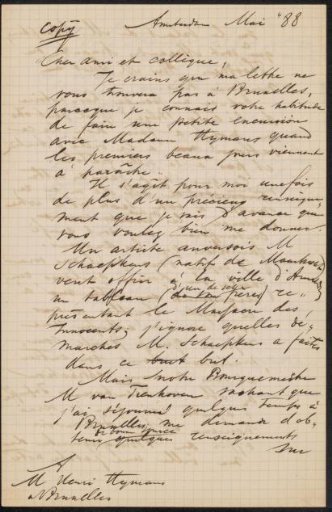 Copy
Amsterdam Mai '88
Cher ami et collègue,
Je crains que ma lettre ne
vous trouvera pas à Bruxelles,
parceque je connais votre habitude
de faire une petite excursion
avec Madame Hymans quand
les premiers beaux jours viennent
à paraître.
Il s'agit pour moi une fois
de plus d'un précieux renseigne-
ment que je sais d'avance que
vous voulez bien me donner.
Un artiste anversois M
Schaepkens (natif de
veut offrir à la ville d'
un tableau (de son frère) re-
présentant le Massacre des
Innocents; j'ignore quelles dé-
marches M. Schaepkens a faites
dans ce but but.
Mais notre Bourguemestre
M van Tienhoven sachant que
j'ai séjourné quelque temps à
Bruxelles, me demande d'ob-
tenir quelques renseignements
Sur
A
M Henri Hymans
à Bruxelles